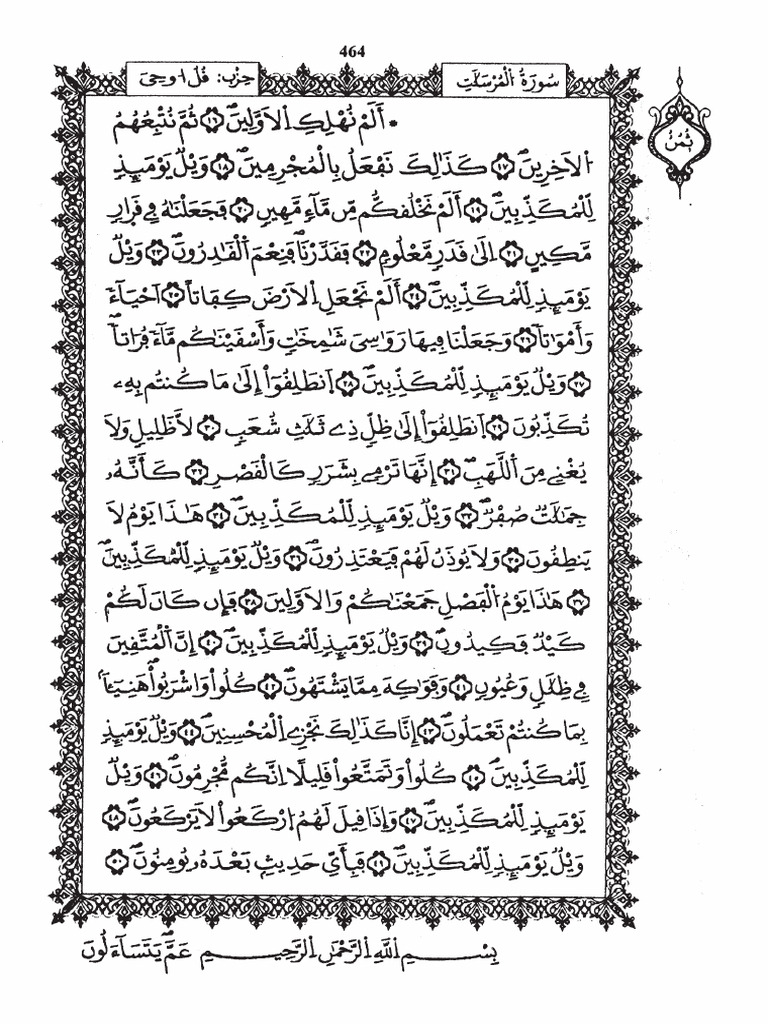 464
سُورَةُ الْمُرْسَلَٰتِ
حِزْب: قُلُ اوحِىَ
ثُمُنُ
* أَلَمْ نُهْلِكِ اِلَاوَّلِينَۖ ١٦ ثُمَّ نُتْبِعُهُمُ
اُلَاخِرِينَۖ ١٧ كَذَٰلِكَ نَفْعَلُ بِالْمُجْرِمِينَۖ ١٨ وَيْلٌ يَوْمَئِذٍ
لِّلْمُكَذِّبِينَۖ ١٩ أَلَمْ نَخْلُقكُّم مِّن مَّآءٍ مَّهِينٍ ٢٠ فَجَعَلْنَٰهُ فِے قَرارٍ
مَّكِينٍ ٢١ اِلَىٰ قَدَرٍ مَّعْلُومٍ ٢٢ فَقَدَّرْنَاۖ فَنِعْمَ اَلْقَٰدِرُونَۖ ٢٣ وَيْلٌ
يَوْمَئِذٍ لِّلْمُكَذِّبِينَۖ ٢٤ أَلَمْ نَجْعَلِ اِلَارْضَ كِفَاتاً ٢٥ اَحْيَآءً
وَأَمْوَٰتاًۖ ٢٦ وَجَعَلْنَا فِيهَا رَوَٰسِىَ شَٰمِخَٰتٍ وَأَسْقَيْنَٰكُم مَّآءً فُرَاتاًۖ
٢٧ وَيْلٌ يَوْمَئِذٍ لِّلْمُكَذِّبِينَۖ ٢٨ اَنطَلِقُوٓاْ إِلَىٰ مَا كُنتُم بِهِۦ
تُكَذِّبُونَ ٢٩ اَنطَلِقُوٓاْ إِلَىٰ ظِلٍّ ذِے ثَلَٰثِ شُعَبٍ ٣٠ لَّا ظَلِيلٍ وَلَا
يُغْنِے مِنَ اَللَّهَبِۖ ٣١ إِنَّهَا تَرْمِے بِشَرَرٍ كَالْقَصْرِ ٣٢ كَأَنَّهُۥ
جِمَٰلَٰتٌ صُفْرٌۖ ٣٣ وَيْلٌ يَوْمَئِذٍ لِّلْمُكَذِّبِينَۖ ٣٤ هَٰذَا يَوْمُ لَا
يَنطِقُونَ ٣٥ وَلَا يُوذَنُ لَهُمْ فَيَعْتَذِرُونَۖ ٣٦ وَيْلٌ يَوْمَئِذٍ لِّلْمُكَذِّبِينَۖ
٣٧ هَٰذَا يَوْمُ اُلْفَصْلِ جَمَعْنَٰكُمْ وَالَاوَّلِينَۖ ٣٨ فَإِن كَانَ لَكُمْ
كَيْدٌ فَكِيدُونِۖ ٣٩ وَيْلٌ يَوْمَئِذٍ لِّلْمُكَذِّبِينَۖ ٤٠ إِنَّ اَلْمُتَّقِينَ
فِے ظِلَٰلٍ وَعُيُونٍ ٤١ وَفَوَٰكِهَ مِمَّا يَشْتَهُونَۖ ٤٢ كُلُواْ وَاشْرَبُواْ هَنِيٓـٔاًۢ
بِمَا كُنتُمْ تَعْمَلُونَۖ ٤٣ إِنَّا كَذَٰلِكَ نَجْزِے اِلْمُحْسِنِينَۖ ٤٤ وَيْلٌ يَوْمَئِذٍ
لِّلْمُكَذِّبِينَۖ ٤٥ كُلُواْ وَتَمَتَّعُواْ قَلِيلًا اِنَّكُم مُّجْرِمُونَۖ ٤٦ وَيْلٌ
يَوْمَئِذٍ لِّلْمُكَذِّبِينَۖ ٤٧ وَإِذَا قِيلَ لَهُمُ اُرْكَعُواْ لَا يَرْكَعُونَۖ ٤٨
وَيْلٌ يَوْمَئِذٍ لِّلْمُكَذِّبِينَۖ ٤٩ فَبِأَيِّ حَدِيثٍۢ بَعْدَهُۥ يُومِنُونَۖ ٥٠
بِسْمِ اِللَّهِ اِلرَّحْمَٰنِ اِلرَّحِيمِ عَمَّ يَتَسَآءَلُونَ